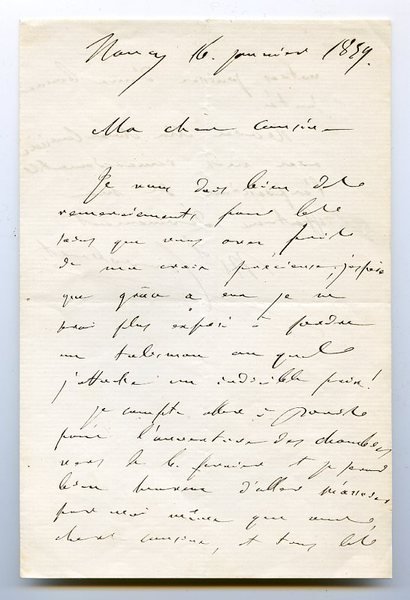 Nancy 16 janvier 1859.
Ma chère cousine
Je vous dois bien des
remerciements pour les
soins que vous avez pris
de ma croix précieuse, j'espère
que grâce à eux je ne
serai plus exposé à perdre
un talisman auquel
j'attache un indicible prix!
je compte aller à
pour l'ouverture des chambres
vers le 6 février et je serai
bien heureux d'aller
pour moi même que vous,
chère cousine, et tous les